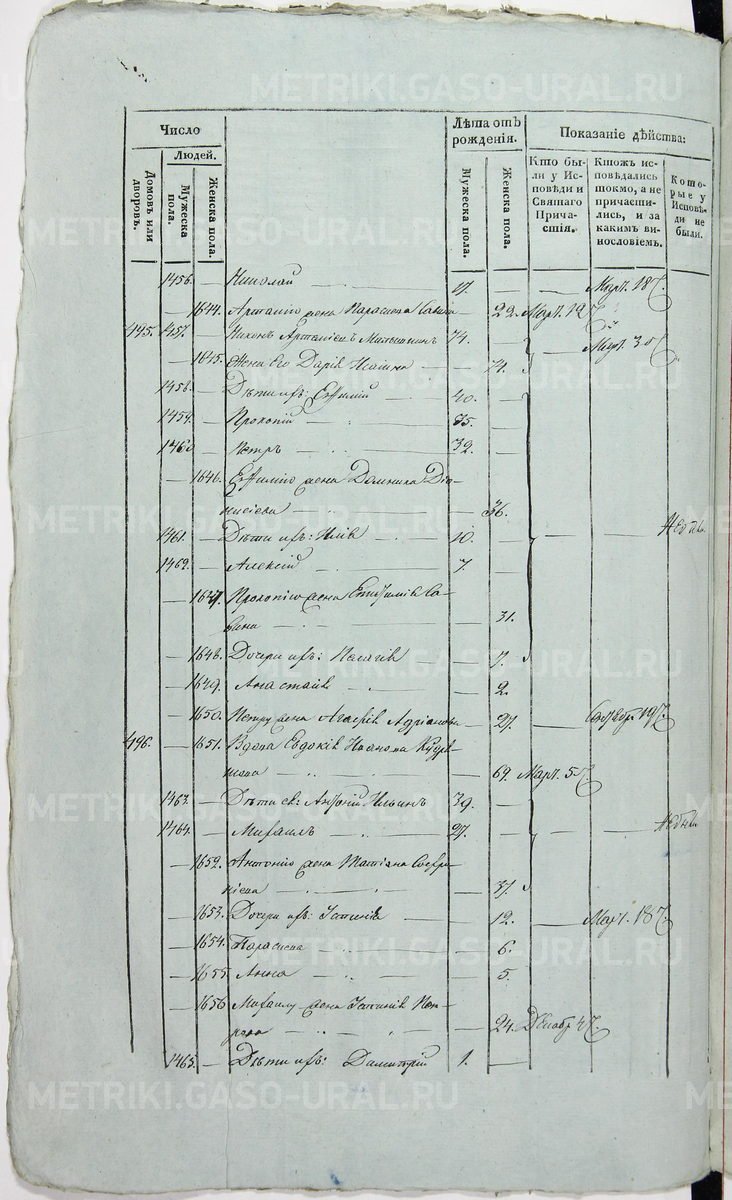 METRIKI.GASO-URAL.RU
Число
Лѣта отъ рожденія.
Показаніе дѣйства:
Людей.
Домовъ или дворовъ.
Мужеска пола.
Женска пола.
Мужеска пола.
Женска пола.
Кто были у Исповѣди и Святаго Причастія.
Ктожъ исповѣдались токмо, а не причастились, и за какимъ винословіемъ.
Которые у Исповѣди не были.
1456. — Николай — 17. — — Март. 18
— 1644. Артамію жена Параскева — 22. Март. 19
495. 1457. — Никонъ Артаміевъ 74. — — Март. 3
— 1645. Жена его Дарія Исаіина — 71.
1458. — Дѣти ихъ: Евфимій — 40. —
1459. — Прокопій — 35. —
1460. — Петръ — 32. —
— 1646. Евфимію жена Домника Діо-
нисіева — 36.
1461. — Дѣти ихъ: Илія — 10. — — —
1462. — Алексій — 7. —
— 1647. Прокопію жена Са-
вина — 31.
— 1648. Дочери ихъ: Пелагія — 7.
— 1649. Анастасія — 2.
— 1650. Петру жена Агафія Адріанова — 27. —
496. — 1651. Вдова Евдокія Иванова
— 69. Март. 5
1463. — Дѣти ея: Антоній Ильинъ 39. —
1464. — Михаилъ — 27. — — —
— 1652. Антонію жена Татіана
— 37.
— 1653. Дочери ихъ: Устинія — 12. — Март. 18
— 1654. Параскева — 6.
— 1655. Анна — 5.
— 1656. Михаилу жена Устинія Пет-
рова — 24. Декабр. 4
1465. — Дѣти ихъ: Димитрій 1. —